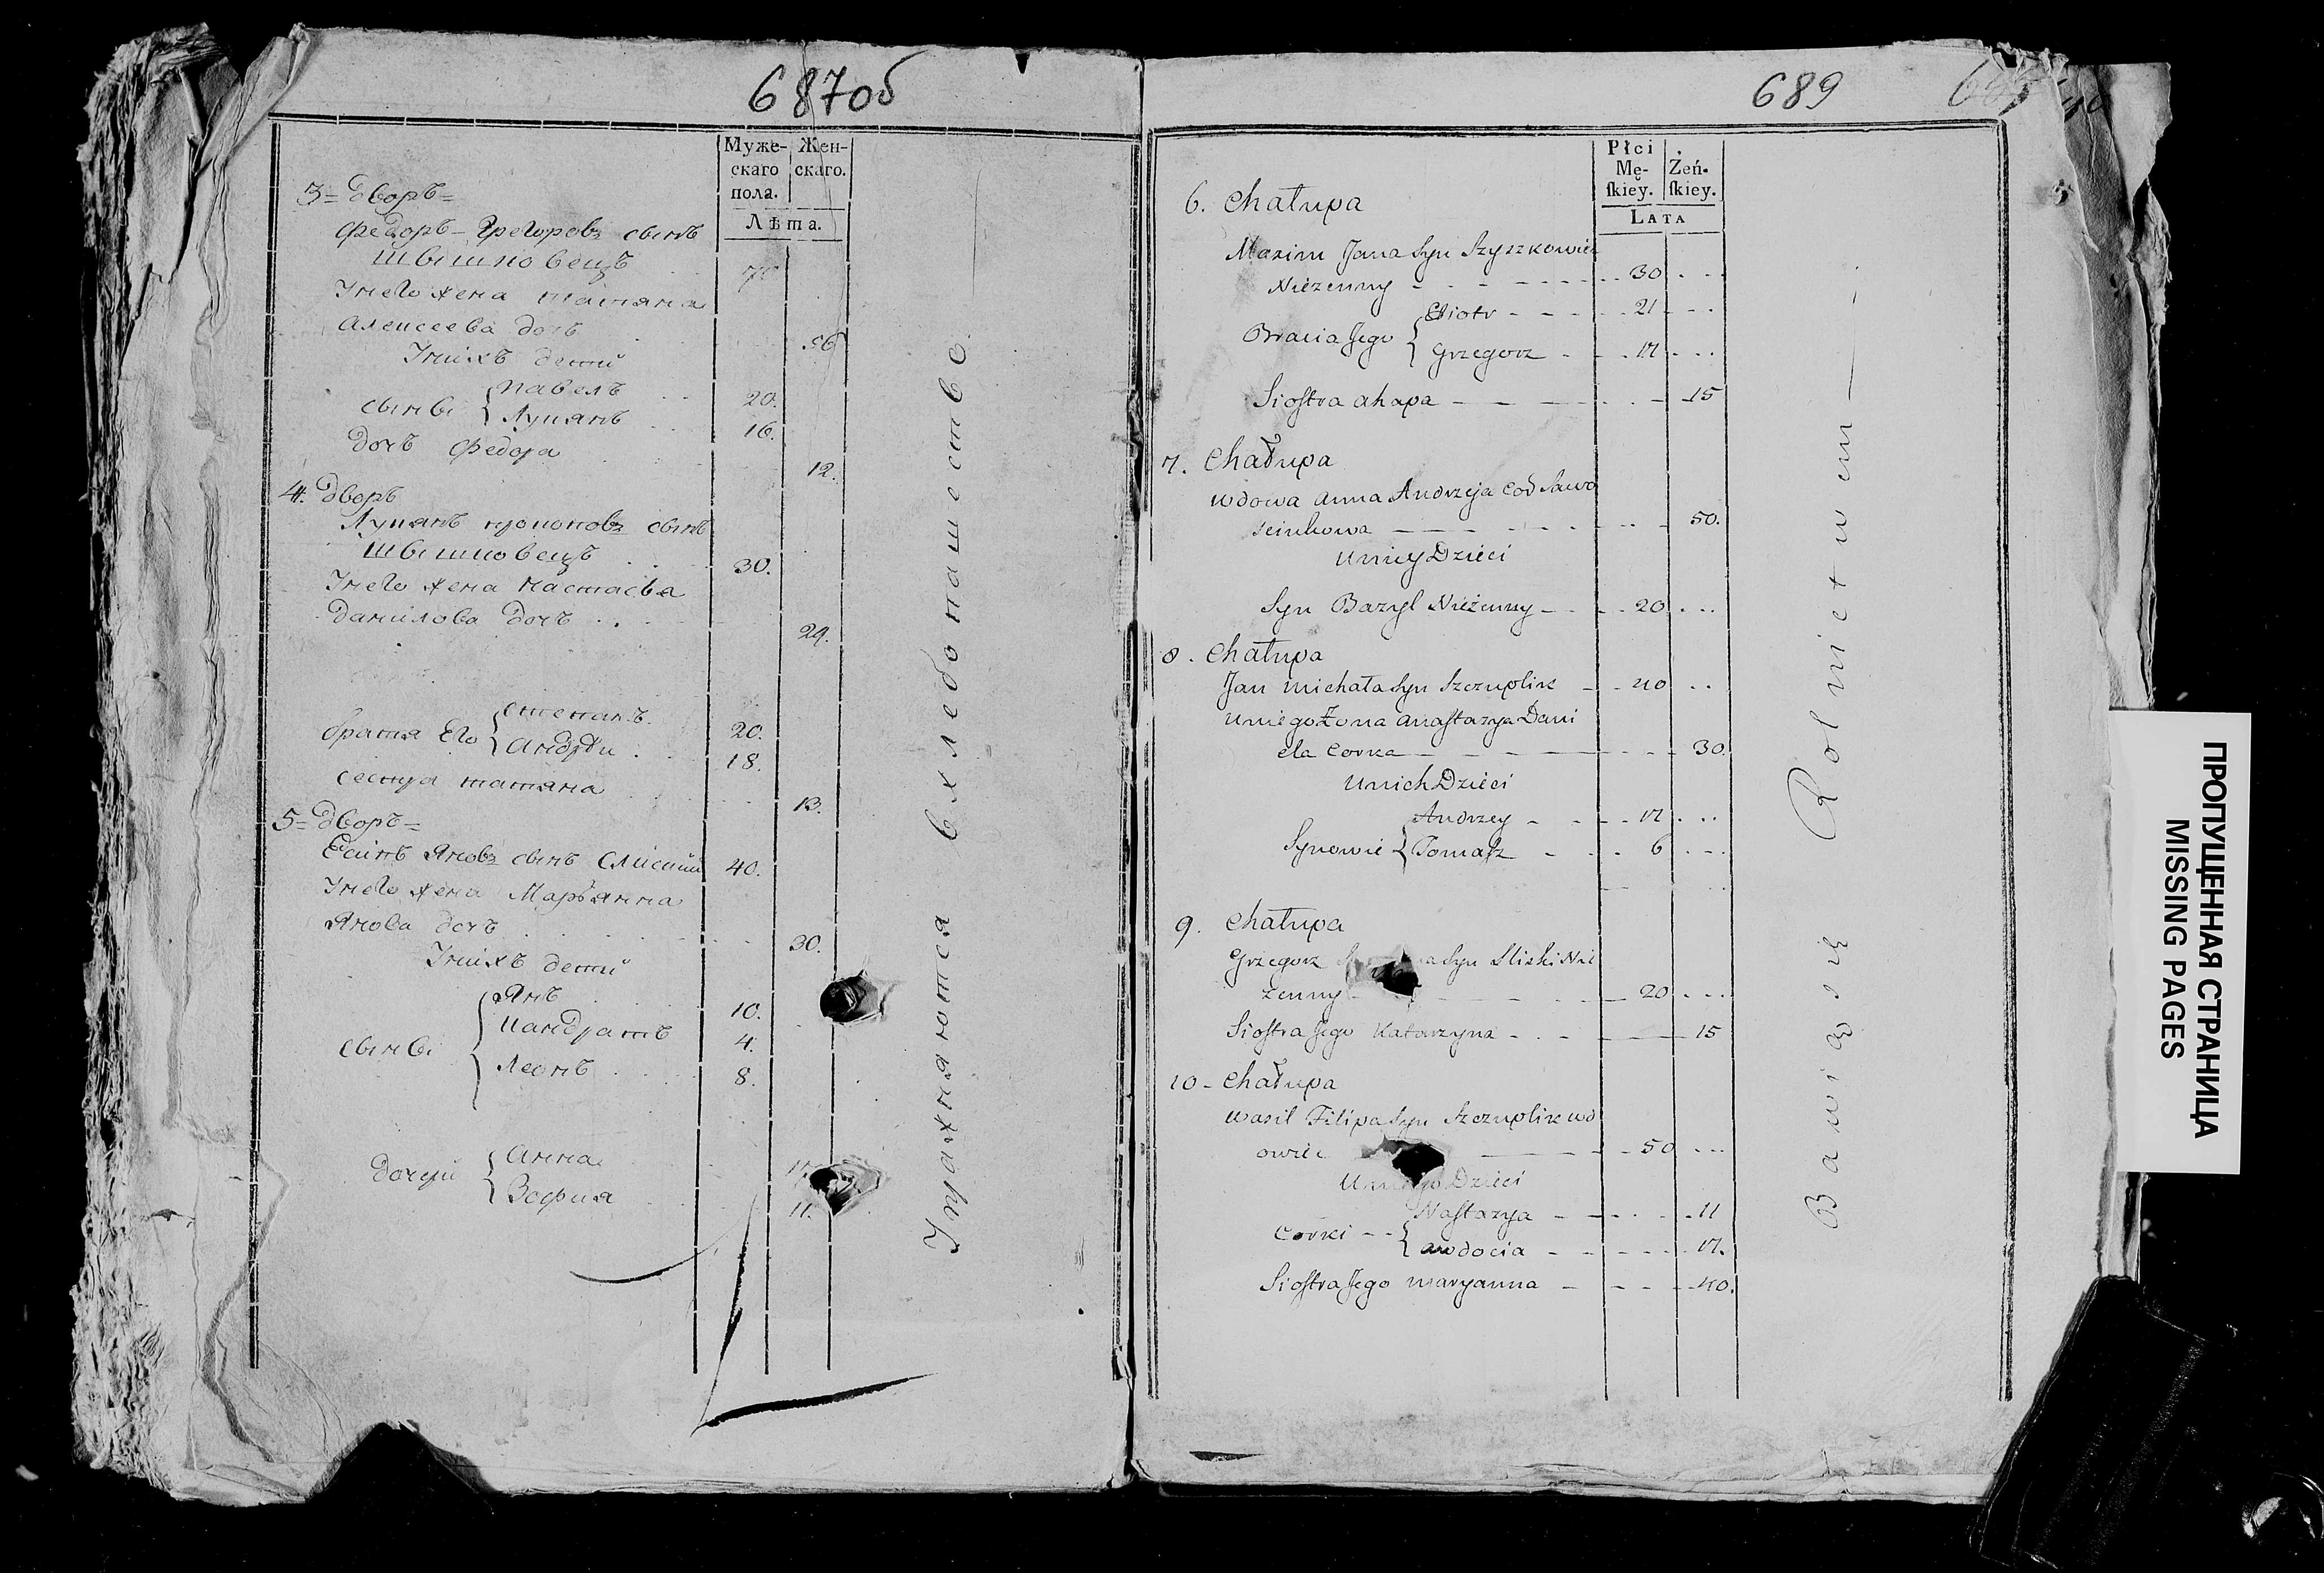 687об
Муже- Жен-
скаго скаго.
пола.
Лѣта.
3 = дворъ =
Федоръ Грегоровъ сынъ
Шышковецъ
Унего жена татяна
Алексеева дочъ 56
Унихъ дети
сыны Павелъ 20.
Лукянъ 16.
дочъ Федора 12.
4. дворъ
Лукянъ сынъ
Шышковецъ 30.
Унего жена настасья
данилова дочъ 29.
братя Его Степанъ 20.
Андрѣй 18.
сестра татяна 13.
5 = дворъ =
Яновъ сынъ Слиский 40.
Унего жена Марьянна
Янова дочъ 30.
Унихъ дети
сыны Янъ 10.
Кандратъ 4.
Леонъ 8.
дочери Анна
Зофия 11.
Упражняются вхлебопашество
689
Płci
Mę- Żeń-
skiey. skiey.
LATA
6. Chałupa
Maxim Jana Syn Szyszkowiec
Nieżenny 30
Bracia Jego Piotr 21
Grzegorz 17
Siostra ahapa 15
7. Chałupa
wdowa anna Andrzeja Cod Sawo
seinkowa 50.
uniey Dzieci
Syn Bazyl Nieżenny 20
8. Chałupa
Jan michała Syn Szczuplik 40
uniego Żona anastazya Dani
ela Corka 30.
unich Dzieci
Synowie Andrzey 17
Tomasz 6
9. Chałupa
Grzegorz Syn Sliski Nie
żenny 20
Siostra Jego Katarzyna 15
10 - Chałupa
wasil Filipa Syn Szczuplik wd
owiec 50
uniego Dzieci
Corki Nastazya 11
awdocia 17.
Siostra Jego maryanna 40.
Bawią się Rolnictwem
ПРОПУЩЕННАЯ СТРАНИЦА
MISSING PAGES